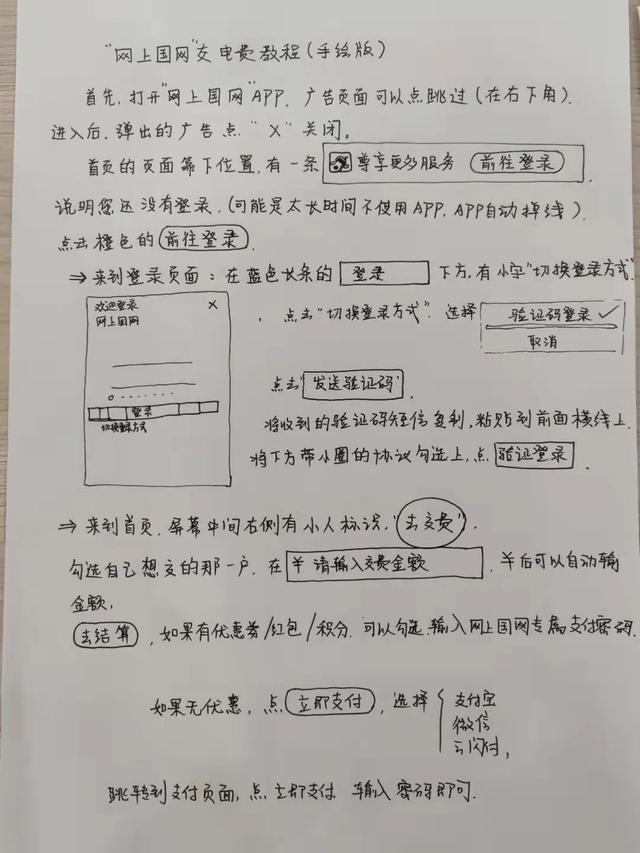 “网上国网”交电费教程(手绘版)
首先,打开“网上国网”APP,广告页面可以点跳过(在右下角).
进入后,弹出的广告点“X”关闭。
首页的页面靠下位置,有一条 尊享更多服务 前往登录
说明您还没有登录.(可能是太长时间不使用APP,APP自动掉线).
点击橙色的 前往登录.
⇒来到登录页面:在蓝色长条的 登录 下方,有小字“切换登录方式”
欢迎登录 X
网上国网
登录
切换登录方式
,点击“切换登录方式”.选择 验证码登录 ✓
取消
点击“发送验证码”.
将收到的验证码短信复制,粘贴到前面横线上.
将下方带小圈的协议勾选上,点 验证登录.
⇒来到首页,屏幕中间右侧有小人标识,“去交费”.
勾选自己想交的那一户.在 ¥ 请输入交费金额,¥后可以自动输
金额.
去结算,如果有优惠券/红包/积分.可以勾选,输入网上国网专属支付密码.
如果无优惠,点 立即支付,选择 { 支付宝
微信
云闪付,
跳转到支付页面,点立即支付 输入密码即可.